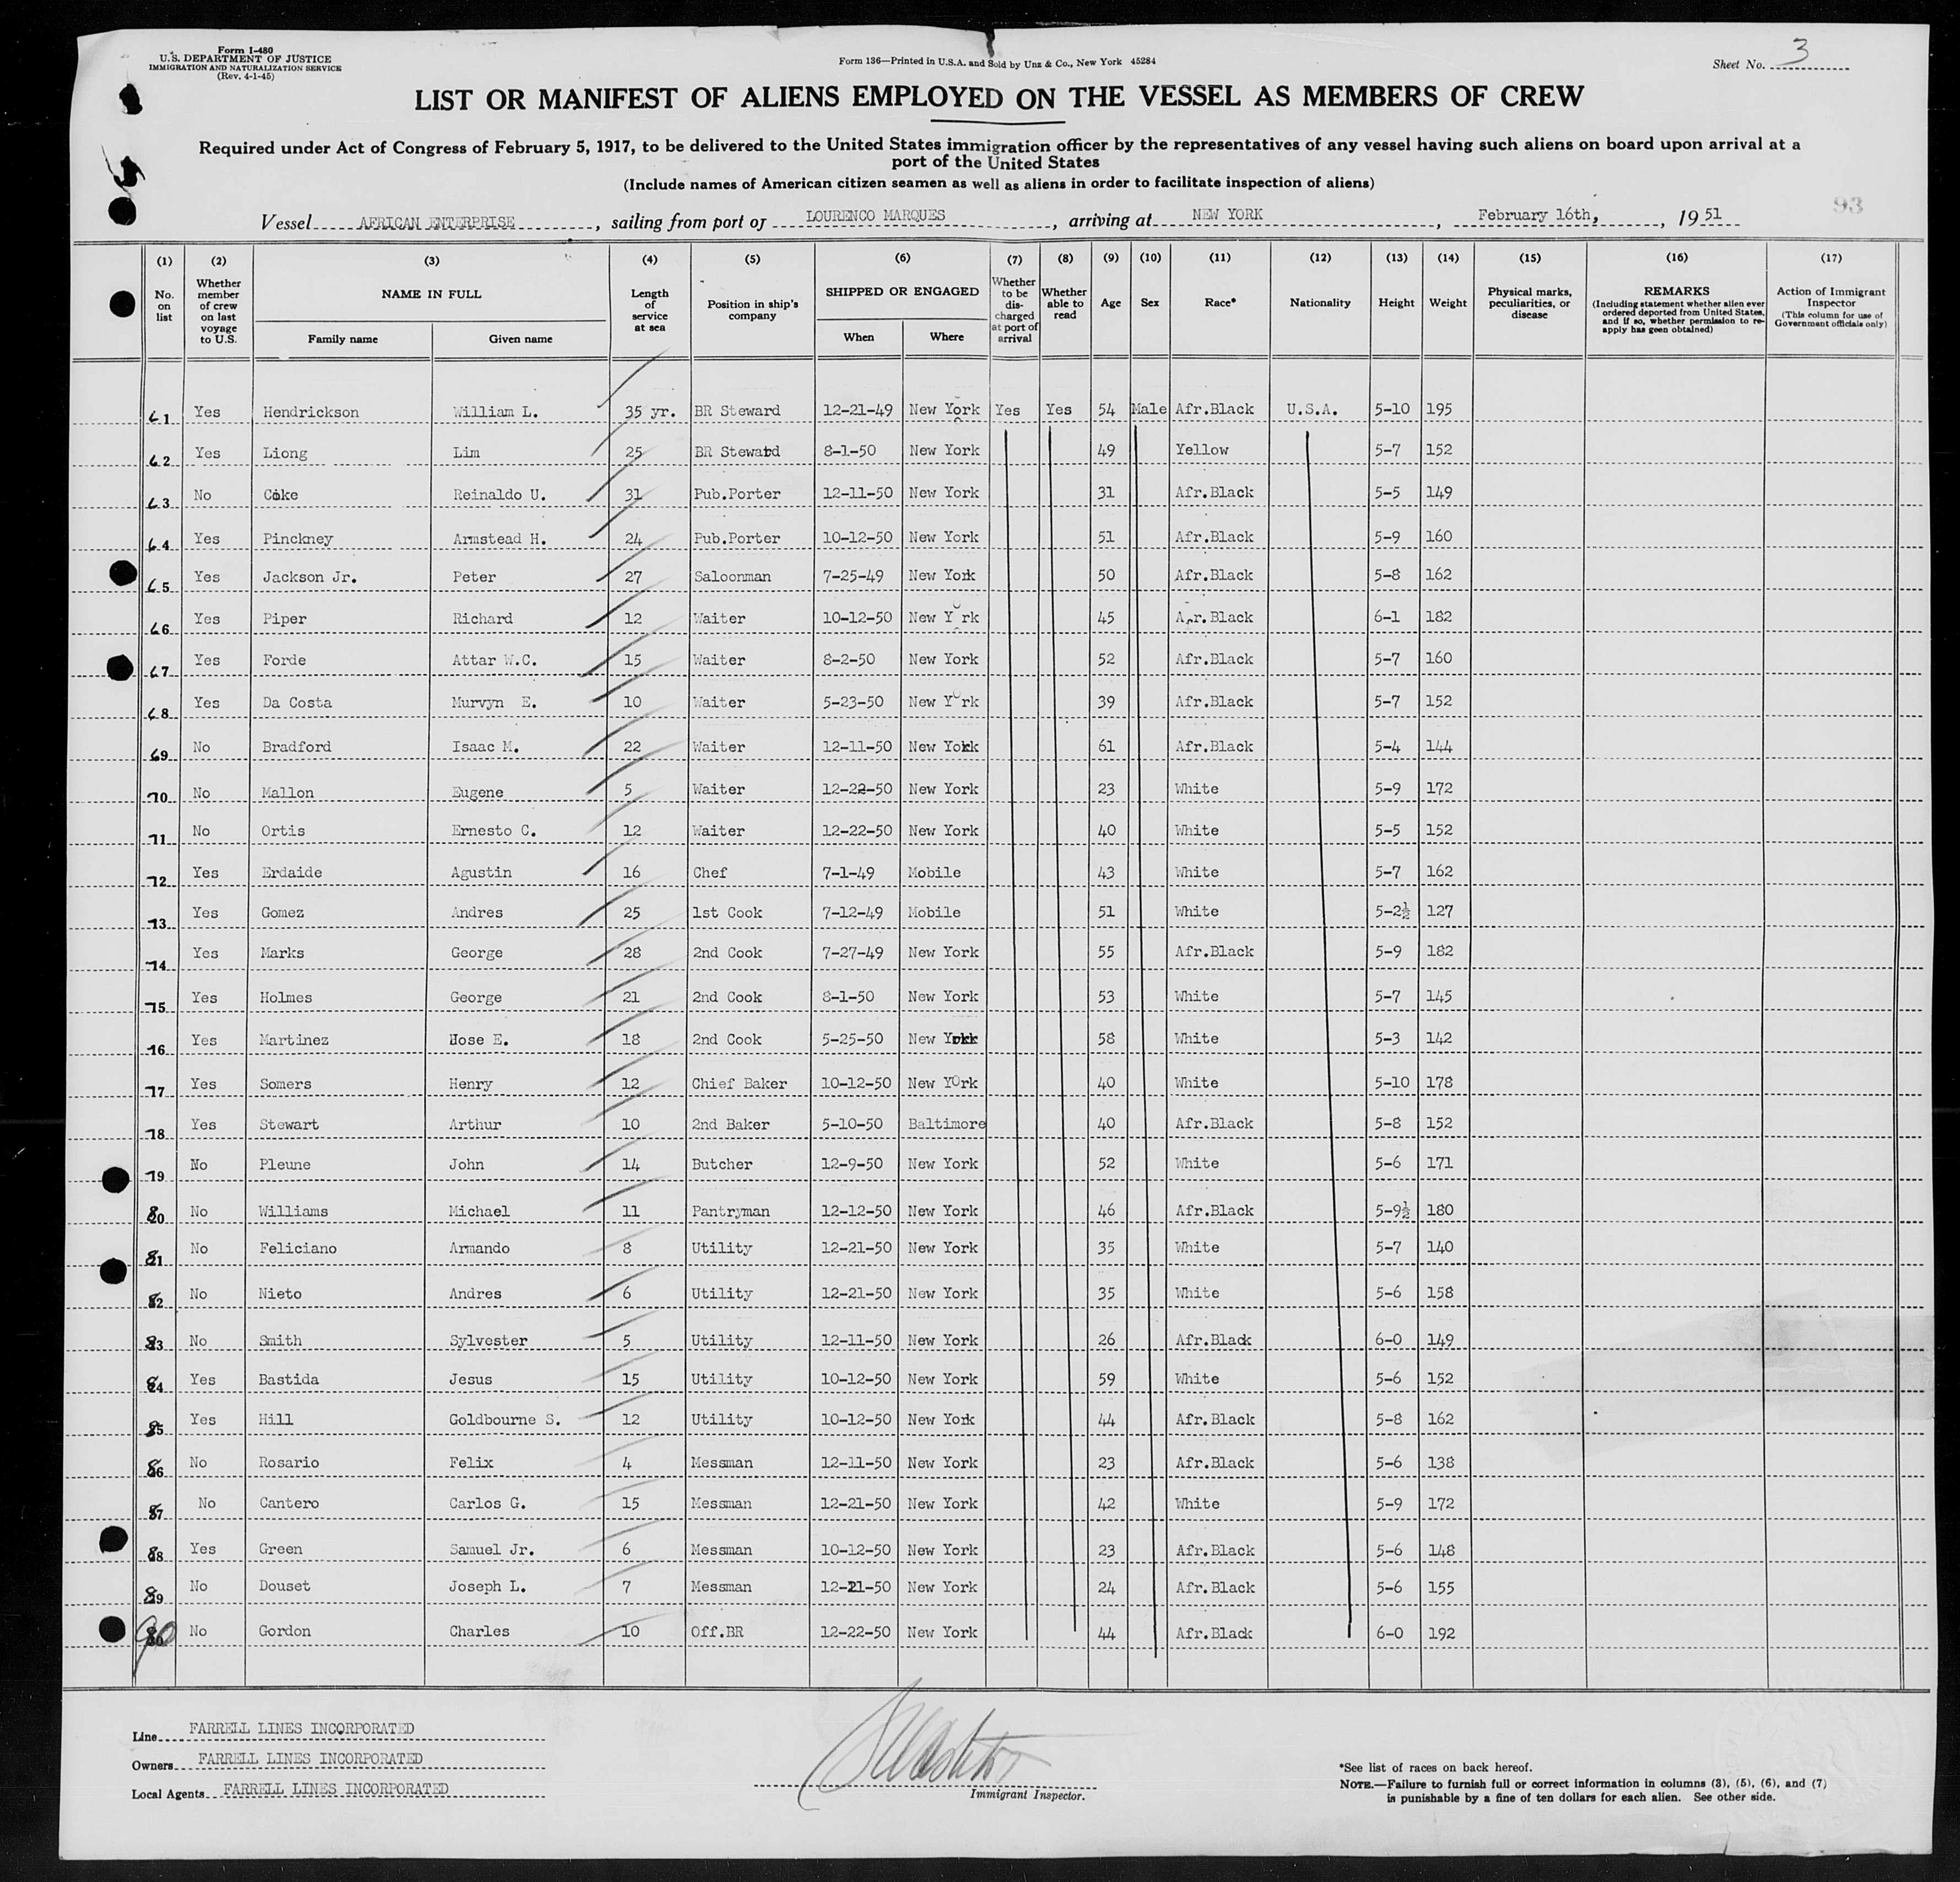 Form I-480
U.S. DEPARTMENT OF JUSTICE
IMMIGRATION AND NATURALIZATION SERVICE
(Rev. 4-1-45)
Form 136—Printed in U.S.A. and Sold by Unz & Co., New York 45284
Sheet No. 3
LIST OR MANIFEST OF ALIENS EMPLOYED ON THE VESSEL AS MEMBERS OF CREW
Required under Act of Congress of February 5, 1917, to be delivered to the United States immigration officer by the representatives of any vessel having such aliens on board upon arrival at a
port of the United States
(Include names of American citizen seamen as well as aliens in order to facilitate inspection of aliens)
93
Vessel AFRICAN ENTERPRISE, sailing from port of LOURENCO MARQUES, arriving at NEW YORK, February 16th, 1951
(1) (2) (3) (4) (5) (6) (7) (8) (9) (10) (11) (12) (13) (14) (15) (16) (17)
No. on list
Whether member of crew on last voyage to U.S.
NAME IN FULL
Family name Given name
Length of service at sea
Position in ship's company
SHIPPED OR ENGAGED
When Where
Whether to be discharged at port of arrival
Whether able to read
Age
Sex
Race*
Nationality
Height
Weight
Physical marks, peculiarities, or disease
REMARKS
(Including statement whether alien ever ordered deported from United States, and if so, whether permission to re-apply has geen obtained)
Action of Immigrant Inspector
(This column for use of Government officials only)
61 Yes Hendrickson William L. 35 yr. BR Steward 12-21-49 New York Yes Yes 54 Male Afr.Black U.S.A. 5-10 195
62 Yes Liong Lim 25 BR Steward 8-1-50 New York 49 Yellow 5-7 152
63 No Coke Reinaldo U. 31 Pub.Porter 12-11-50 New York 31 Afr.Black 5-5 149
64 Yes Pinckney Armstead H. 24 Pub.Porter 10-12-50 New York 51 Afr.Black 5-9 160
65 Yes Jackson Jr. Peter 27 Saloonman 7-25-49 New York 50 Afr.Black 5-8 162
66 Yes Piper Richard 12 Waiter 10-12-50 New York 45 Afr.Black 6-1 182
67 Yes Forde Attar W.C. 15 Waiter 8-2-50 New York 52 Afr.Black 5-7 160
68 Yes Da Costa Murvyn E. 10 Waiter 5-23-50 New York 39 Afr.Black 5-7 152
69 No Bradford Isaac M. 22 Waiter 12-11-50 New York 61 Afr.Black 5-4 144
70 No Mallon Eugene 5 Waiter 12-22-50 New York 23 White 5-9 172
71 No Ortis Ernesto C. 12 Waiter 12-22-50 New York 40 White 5-5 152
72 Yes Erdaide Agustin 16 Chef 7-1-49 Mobile 43 White 5-7 162
73 Yes Gomez Andres 25 1st Cook 7-12-49 Mobile 51 White 5-2½ 127
74 Yes Marks George 28 2nd Cook 7-27-49 New York 55 Afr.Black 5-9 182
75 Yes Holmes George 21 2nd Cook 8-1-50 New York 53 White 5-7 145
76 Yes Martinez Hose E. 18 2nd Cook 5-25-50 New York 58 White 5-3 142
77 Yes Somers Henry 12 Chief Baker 10-12-50 New York 40 White 5-10 178
78 Yes Stewart Arthur 10 2nd Baker 5-10-50 Baltimore 40 Afr.Black 5-8 152
79 No Pleune John 14 Butcher 12-9-50 New York 52 White 5-6 171
80 No Williams Michael 11 Pantryman 12-12-50 New York 46 Afr.Black 5-9½ 180
81 No Feliciano Armando 8 Utility 12-21-50 New York 35 White 5-7 140
82 No Nieto Andres 6 Utility 12-21-50 New York 35 White 5-6 158
83 No Smith Sylvester 5 Utility 12-11-50 New York 26 Afr.Black 6-0 149
84 Yes Bastida Jesus 15 Utility 10-12-50 New York 59 White 5-6 152
85 Yes Hill Goldbourne S. 12 Utility 10-12-50 New York 44 Afr.Black 5-8 162
86 No Rosario Felix 4 Messman 12-11-50 New York 23 Afr.Black 5-6 138
87 No Cantero Carlos G. 15 Messman 12-21-50 New York 42 White 5-9 172
88 Yes Green Samuel Jr. 6 Messman 10-12-50 New York 23 Afr.Black 5-6 148
89 No Douset Joseph L. 7 Messman 12-21-50 New York 24 Afr.Black 5-6 155
90 No Gordon Charles 10 Off.BR 12-22-50 New York 44 Afr.Black 6-0 192
Line FARRELL LINES INCORPORATED
Owners FARRELL LINES INCORPORATED
Local Agents FARRELL LINES INCORPORATED
Immigrant Inspector.
*See list of races on back hereof.
NOTE.—Failure to furnish full or correct information in columns (3), (5), (6), and (7)
is punishable by a fine of ten dollars for each alien. See other side.